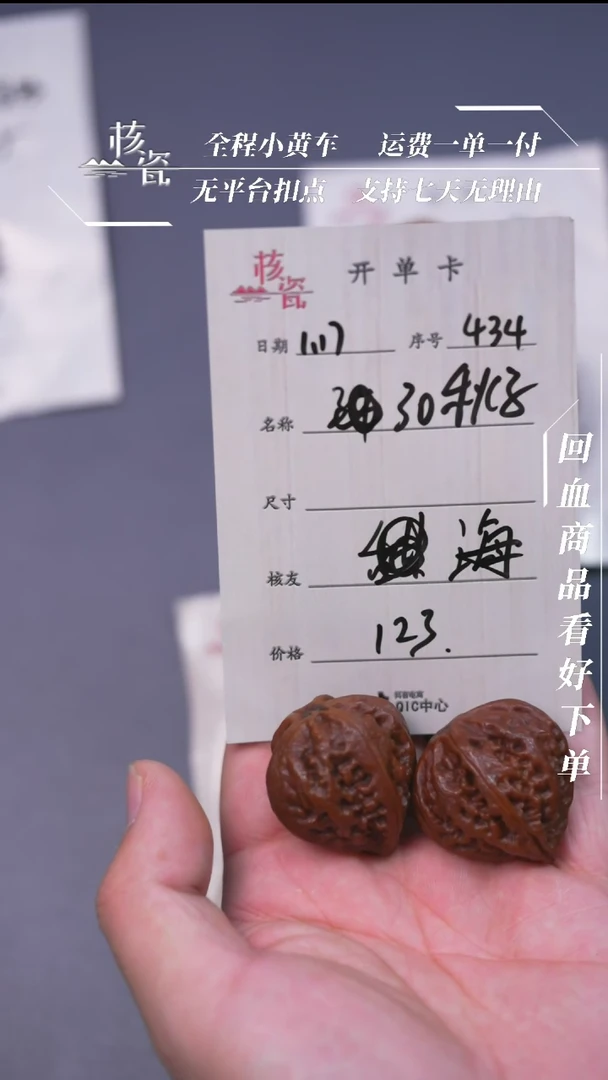 核瓷
全程小黄车 运费一单一付
无平台扣点 支持七天无理由
核瓷 开单卡
日期 1.17 序号 434
名称 30
尺寸
核友 海
价格 123.
抖音电商
QIC中心
回血商品看好下单